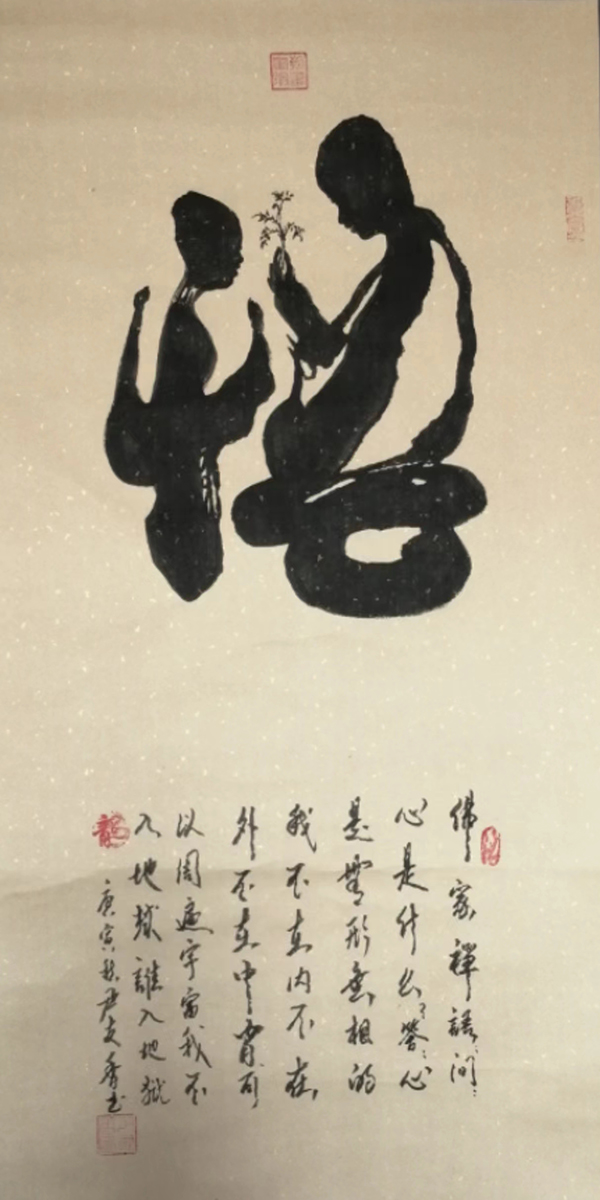 悟
佛家禪語：问：
心是什么？答：心
是無形無相的
我不在内不在
外不在中可
以周遍宇宙我不
入地獄誰入地獄
庚寅秋尹夫香书
龍